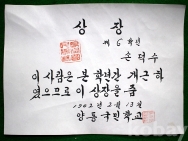 상장
제 6 학년
손덕수
이 사람은 본 학년간 개근하
였으므로 이 상장을 줌
1962년 2월 13일
양동국민학교